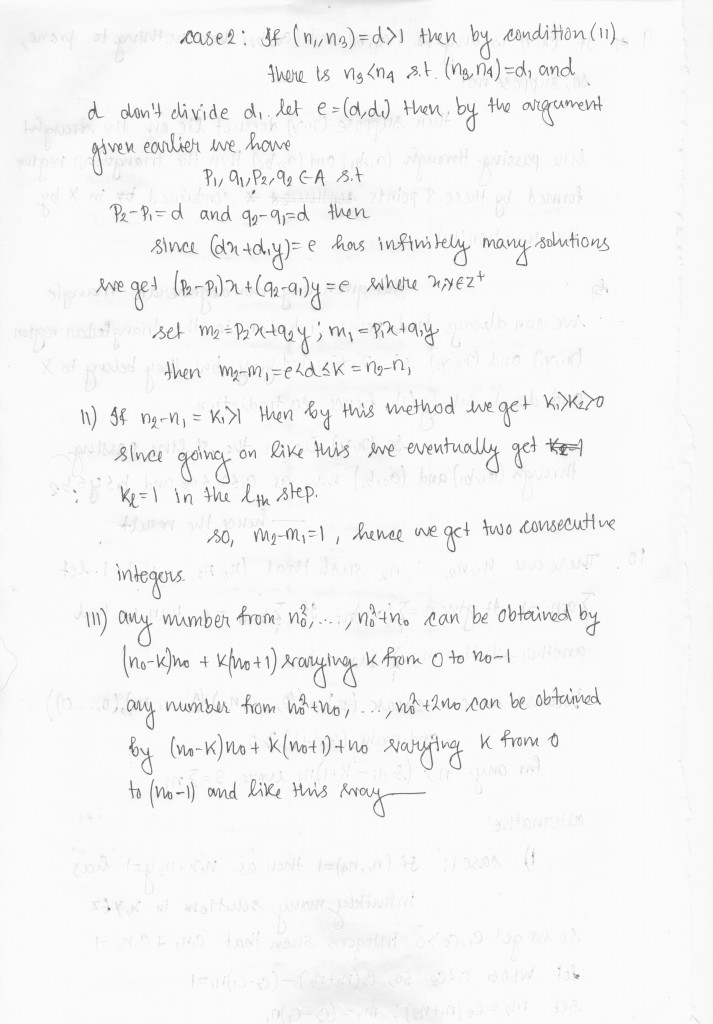 case 2: If (n₁,n₃)=d>1 then by condition (11)
there is n₃<n₄ s.t. (n₃,n₄)=d₁ and
d don't divide d₁. let e=(d,d₁) then, by the argument
given earlier we, have
P₁, q₁, P₂, q₂ ∈ A s.t
P₂-P₁=d and q₂-q₁=d then
since (dx+d₁y)=e has infinitely many solutions
we get (P₂-P₁)x+(q₂-q₁)y=e where x,y∈Z⁺
set m₂=P₂x+q₂y; m₁=P₁x+q₁y
then m₂-m₁=e<d≤K=n₂-n₁
11) If n₂-n₁=K₁>1 then by this method we get K₁>K₂>0
since going on like this we eventually get
∴ Kℓ=1 in the ℓth step.
so, m₂-m₁=1, hence we get two consecutive
integers.
111) any number from n₀², ..., n₀²+n₀ can be obtained by
(n₀-K)n₀ + K(n₀+1) varying K from 0 to n₀-1
any number from n₀²+n₀, ..., n₀²+2n₀ can be obtained
by (n₀-K)n₀+K(n₀+1)+n₀ varying K from 0
to (n₀-1) and like this way—